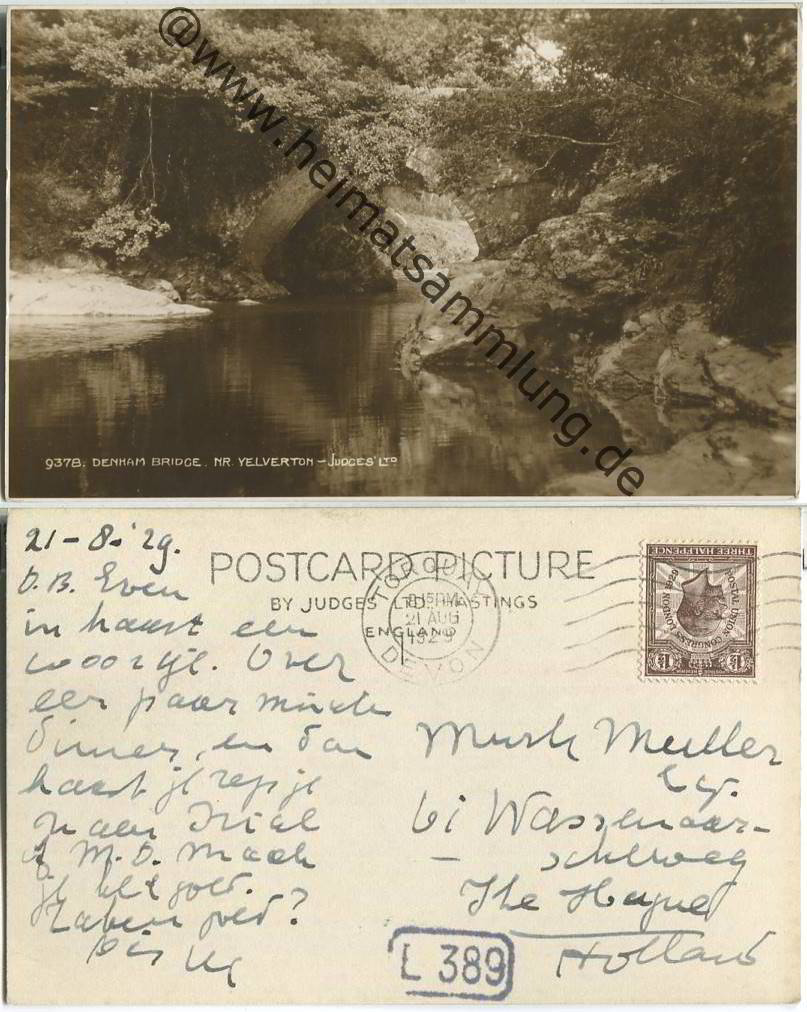 @www.heimatsammlung.de
9378. DENHAM BRIDGE. NR. YELVERTON – JUDGES' LTD
21-8-'29.
POSTCARD PICTURE
BY JUDGES' LTD HASTINGS
ENGLAND
TORQUAY
8.15 PM
21 AUG
1929
DEVON
THREE HALFPENCE
POSTAL UNION CONGRESS LONDON 1929
1½ 1½
O.B. Even
in haast een
woordje. Over
een paar minuten
diner, en dan
haast je rep je
naar
M.D. Maak
je het goed.
goed?
Murk Muller
Esq.
61 Wassenaar-
The Hague
Holland
L 389